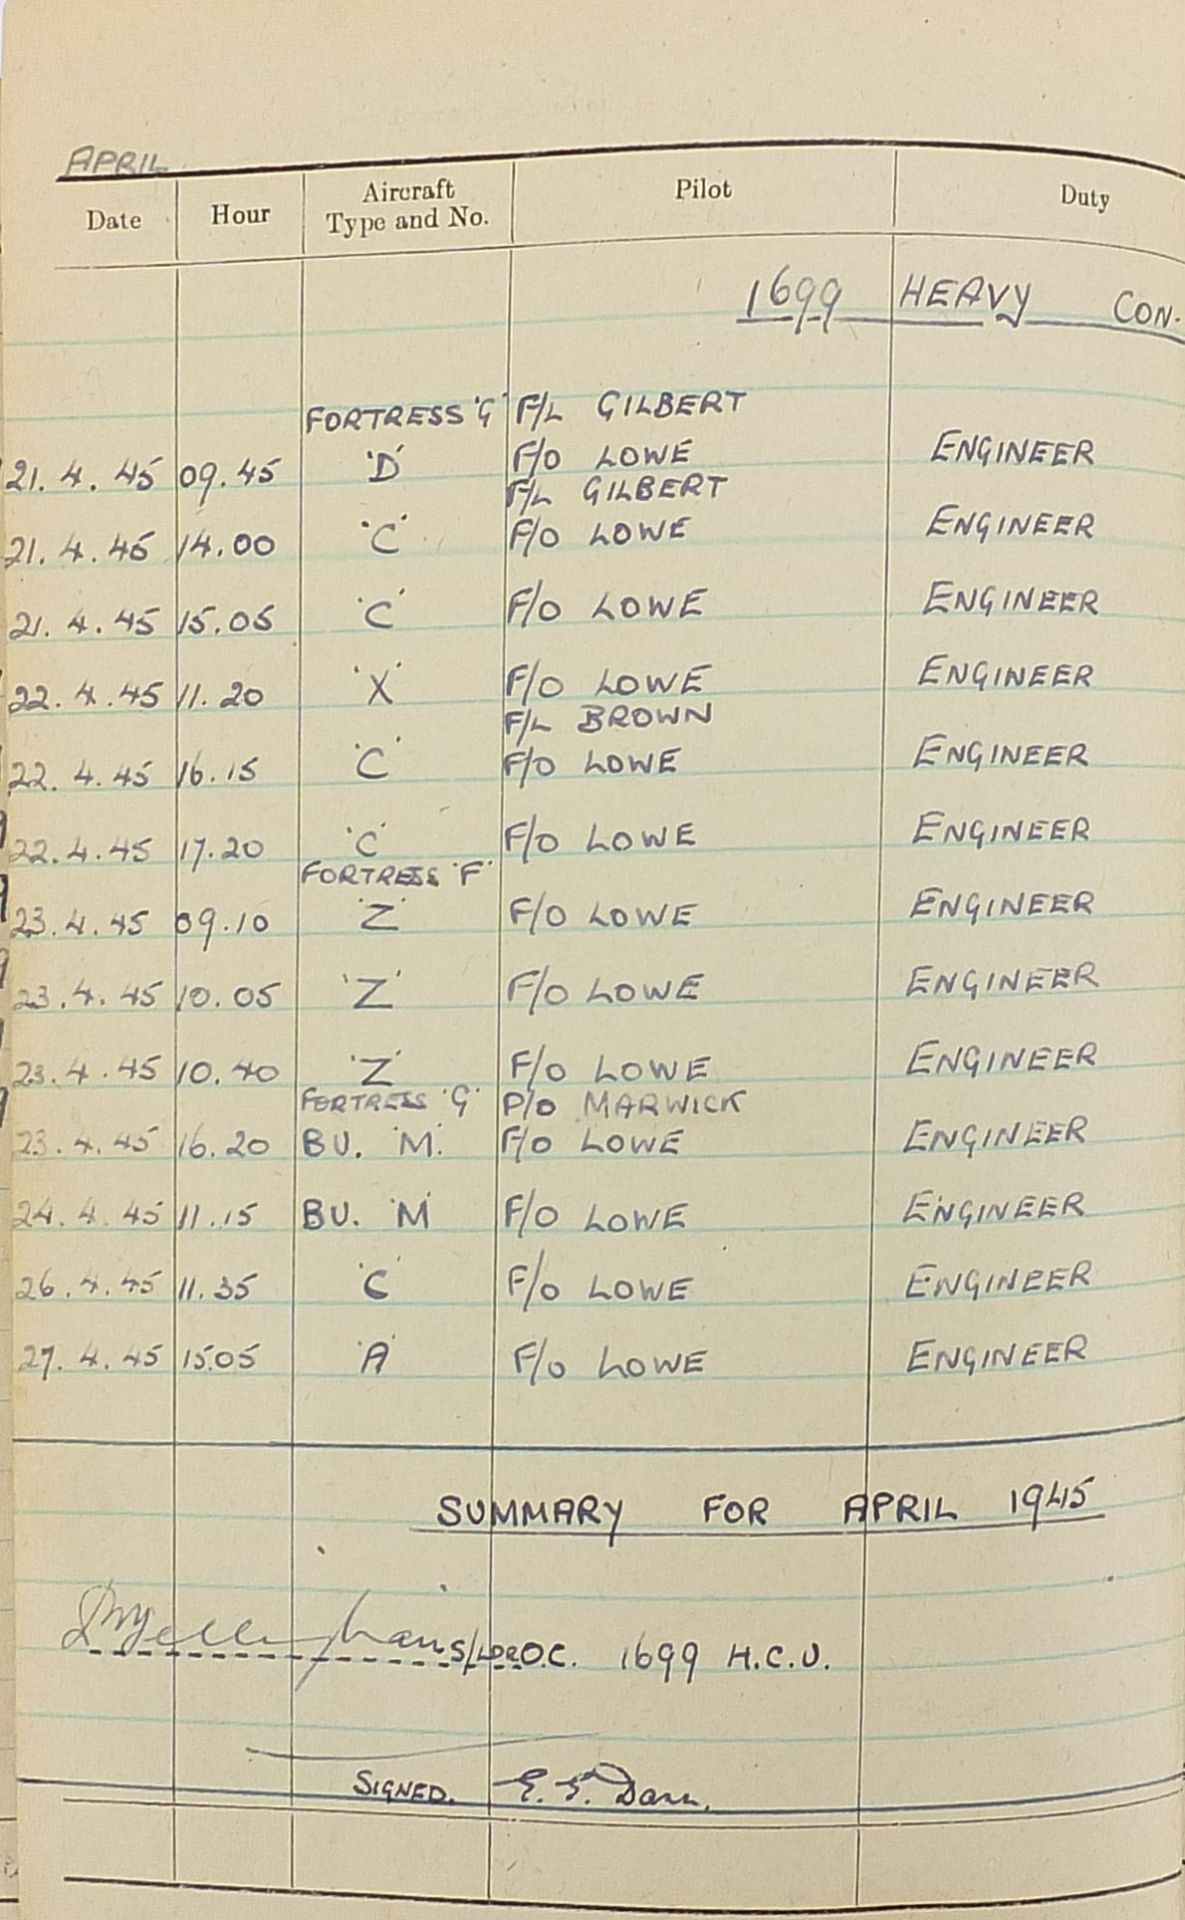 APRIL
Date Hour Aircraft Type and No. Pilot Duty
1699 HEAVY CON.
FORTRESS 'G' F/L GILBERT
21.4.45 09.45 'D' F/O LOWE ENGINEER
F/L GILBERT
21.4.45 14.00 'C' F/O LOWE ENGINEER
21.4.45 15.05 'C' F/O LOWE ENGINEER
22.4.45 11.20 'X' F/O LOWE ENGINEER
F/L BROWN
22.4.45 16.15 'C' F/O LOWE ENGINEER
22.4.45 17.20 'C' F/O LOWE ENGINEER
FORTRESS 'F'
23.4.45 09.10 'Z' F/O LOWE ENGINEER
23.4.45 10.05 'Z' F/O LOWE ENGINEER
23.4.45 10.40 'Z' F/O LOWE ENGINEER
FORTRESS 'G' P/O MARWICK
23.4.45 16.20 BU. 'M' F/O LOWE ENGINEER
24.4.45 11.15 BU. 'M' F/O LOWE ENGINEER
26.4.45 11.35 'C' F/O LOWE ENGINEER
27.4.45 15.05 'A' F/O LOWE ENGINEER
SUMMARY FOR APRIL 1945
S/LDR O.C. 1699 H.C.U.
SIGNED.